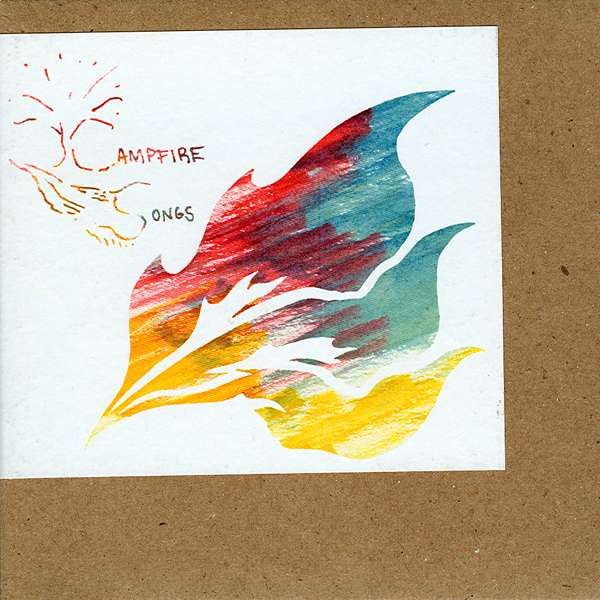 CAMPFIRE
SONGS